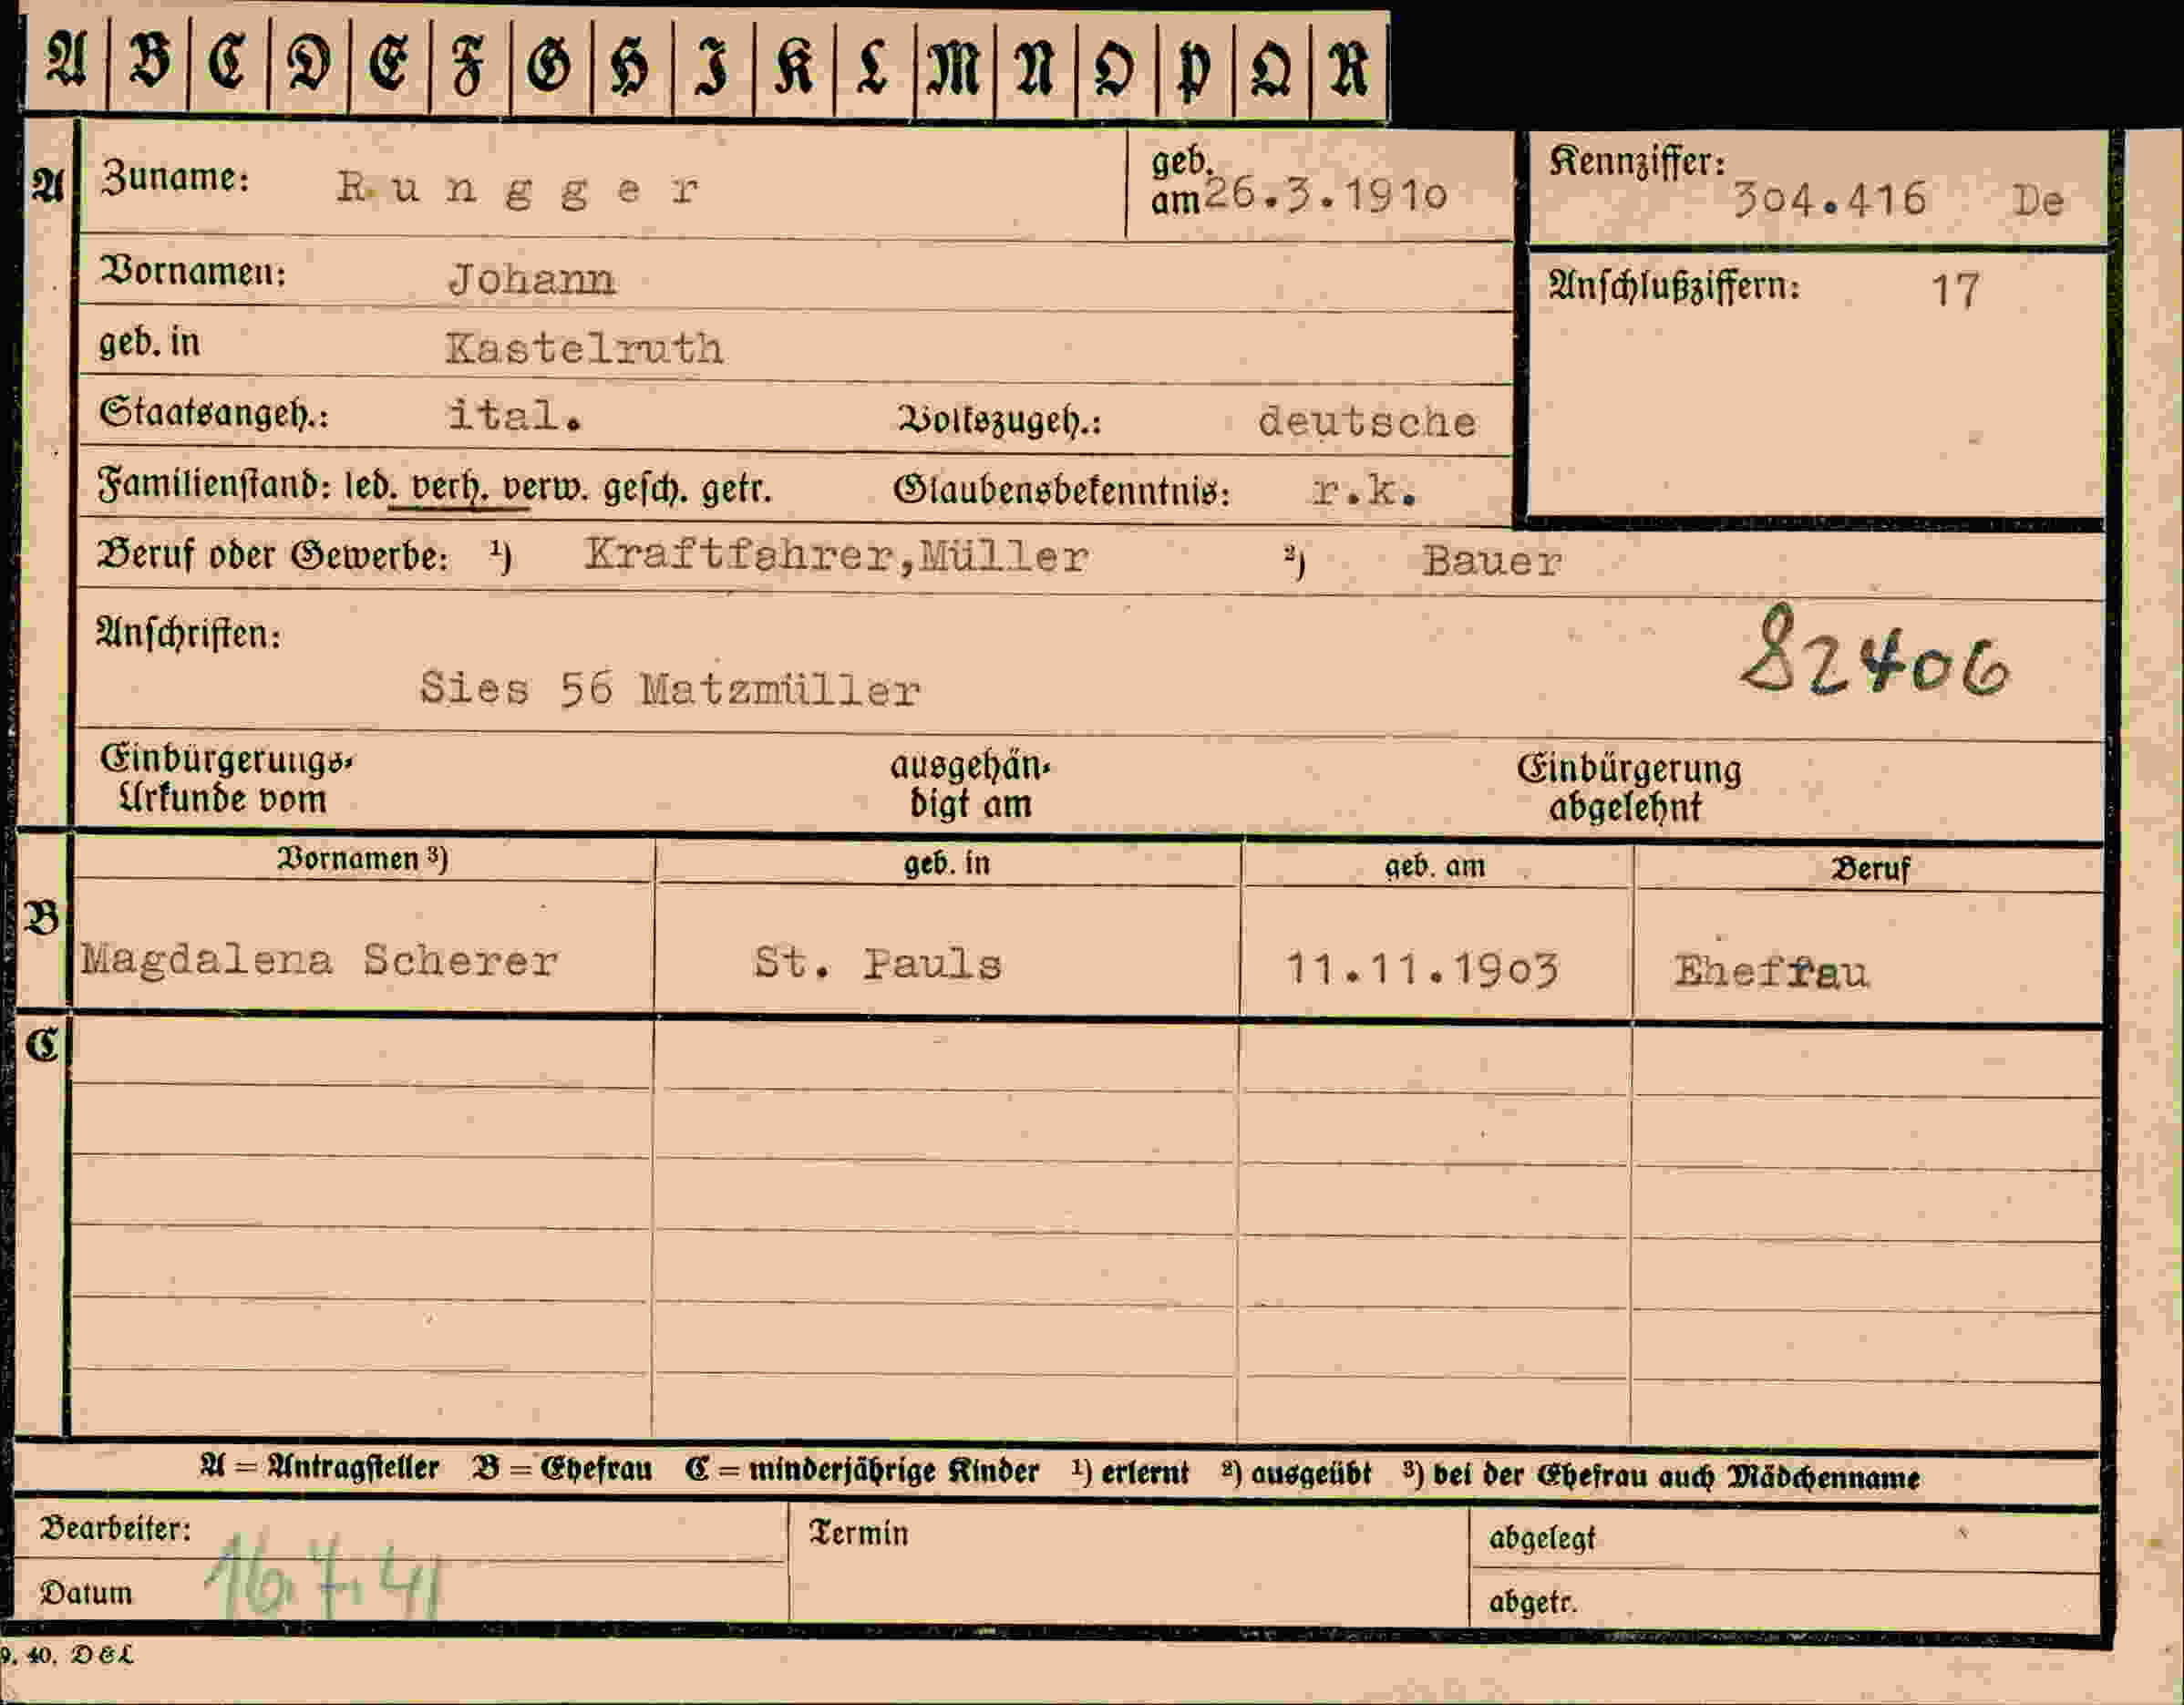 A B C D E F G H I K L M N O P Q R
A Zuname: Rungger geb. am 26.3.1910 Kennziffer: 304.416 De
Vornamen: Johann Anschlußziffern: 17
geb. in Kastelruth
Staatsangeh.: ital. Volkszugeh.: deutsche
Familienstand: led. verh. verw. gesch. getr. Glaubensbekenntnis: r.k.
Beruf oder Gewerbe: ¹) Kraftfahrer,Müller ²) Bauer
Anschriften:
82406
Sies 56 Matzmüller
Einbürgerungs- ausgehän- Einbürgerung
Urkunde vom digt am abgelehnt
Vornamen ³) geb. in geb. am Beruf
B
Magdalena Scherer St. Pauls 11.11.1903 Ehefrau
C
A = Antragsteller B = Ehefrau C = minderjährige Kinder ¹) erlernt ²) ausgeübt ³) bei der Ehefrau auch Mädchenname
Bearbeiter: Termin abgelegt
Datum 16.7.41 abgetr.
9. 40. D&L